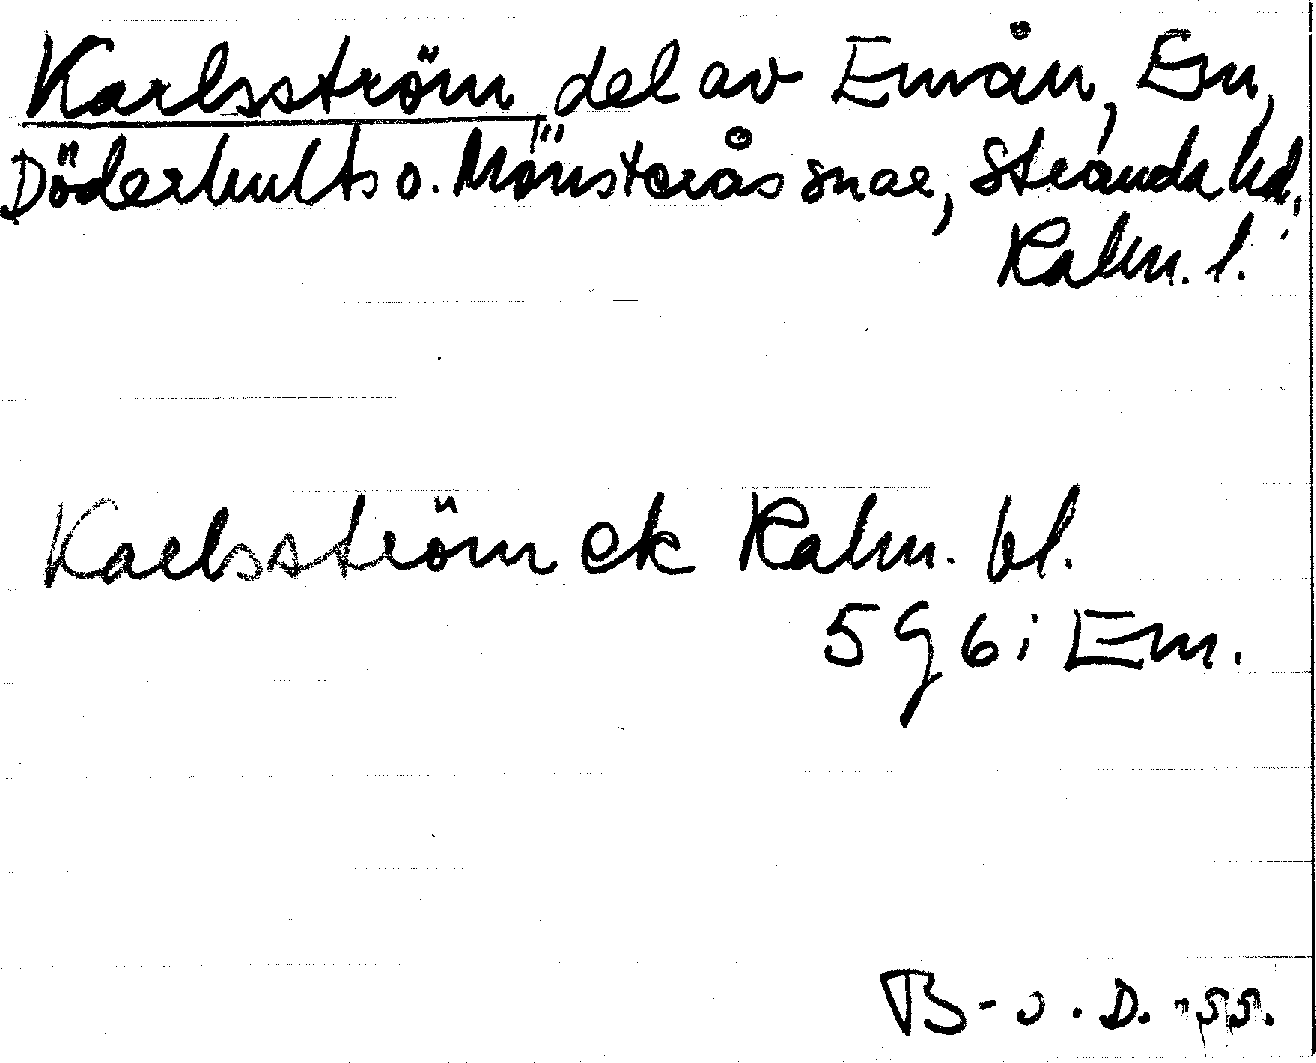 Karlsström, del av Emån, Em,
Döderhults o. Mönsterås snar, Stranda hd,
Kalm. l.
Karlsström ek Kalm. bl.
5 g 6 i Em.
B-o. D. -55.